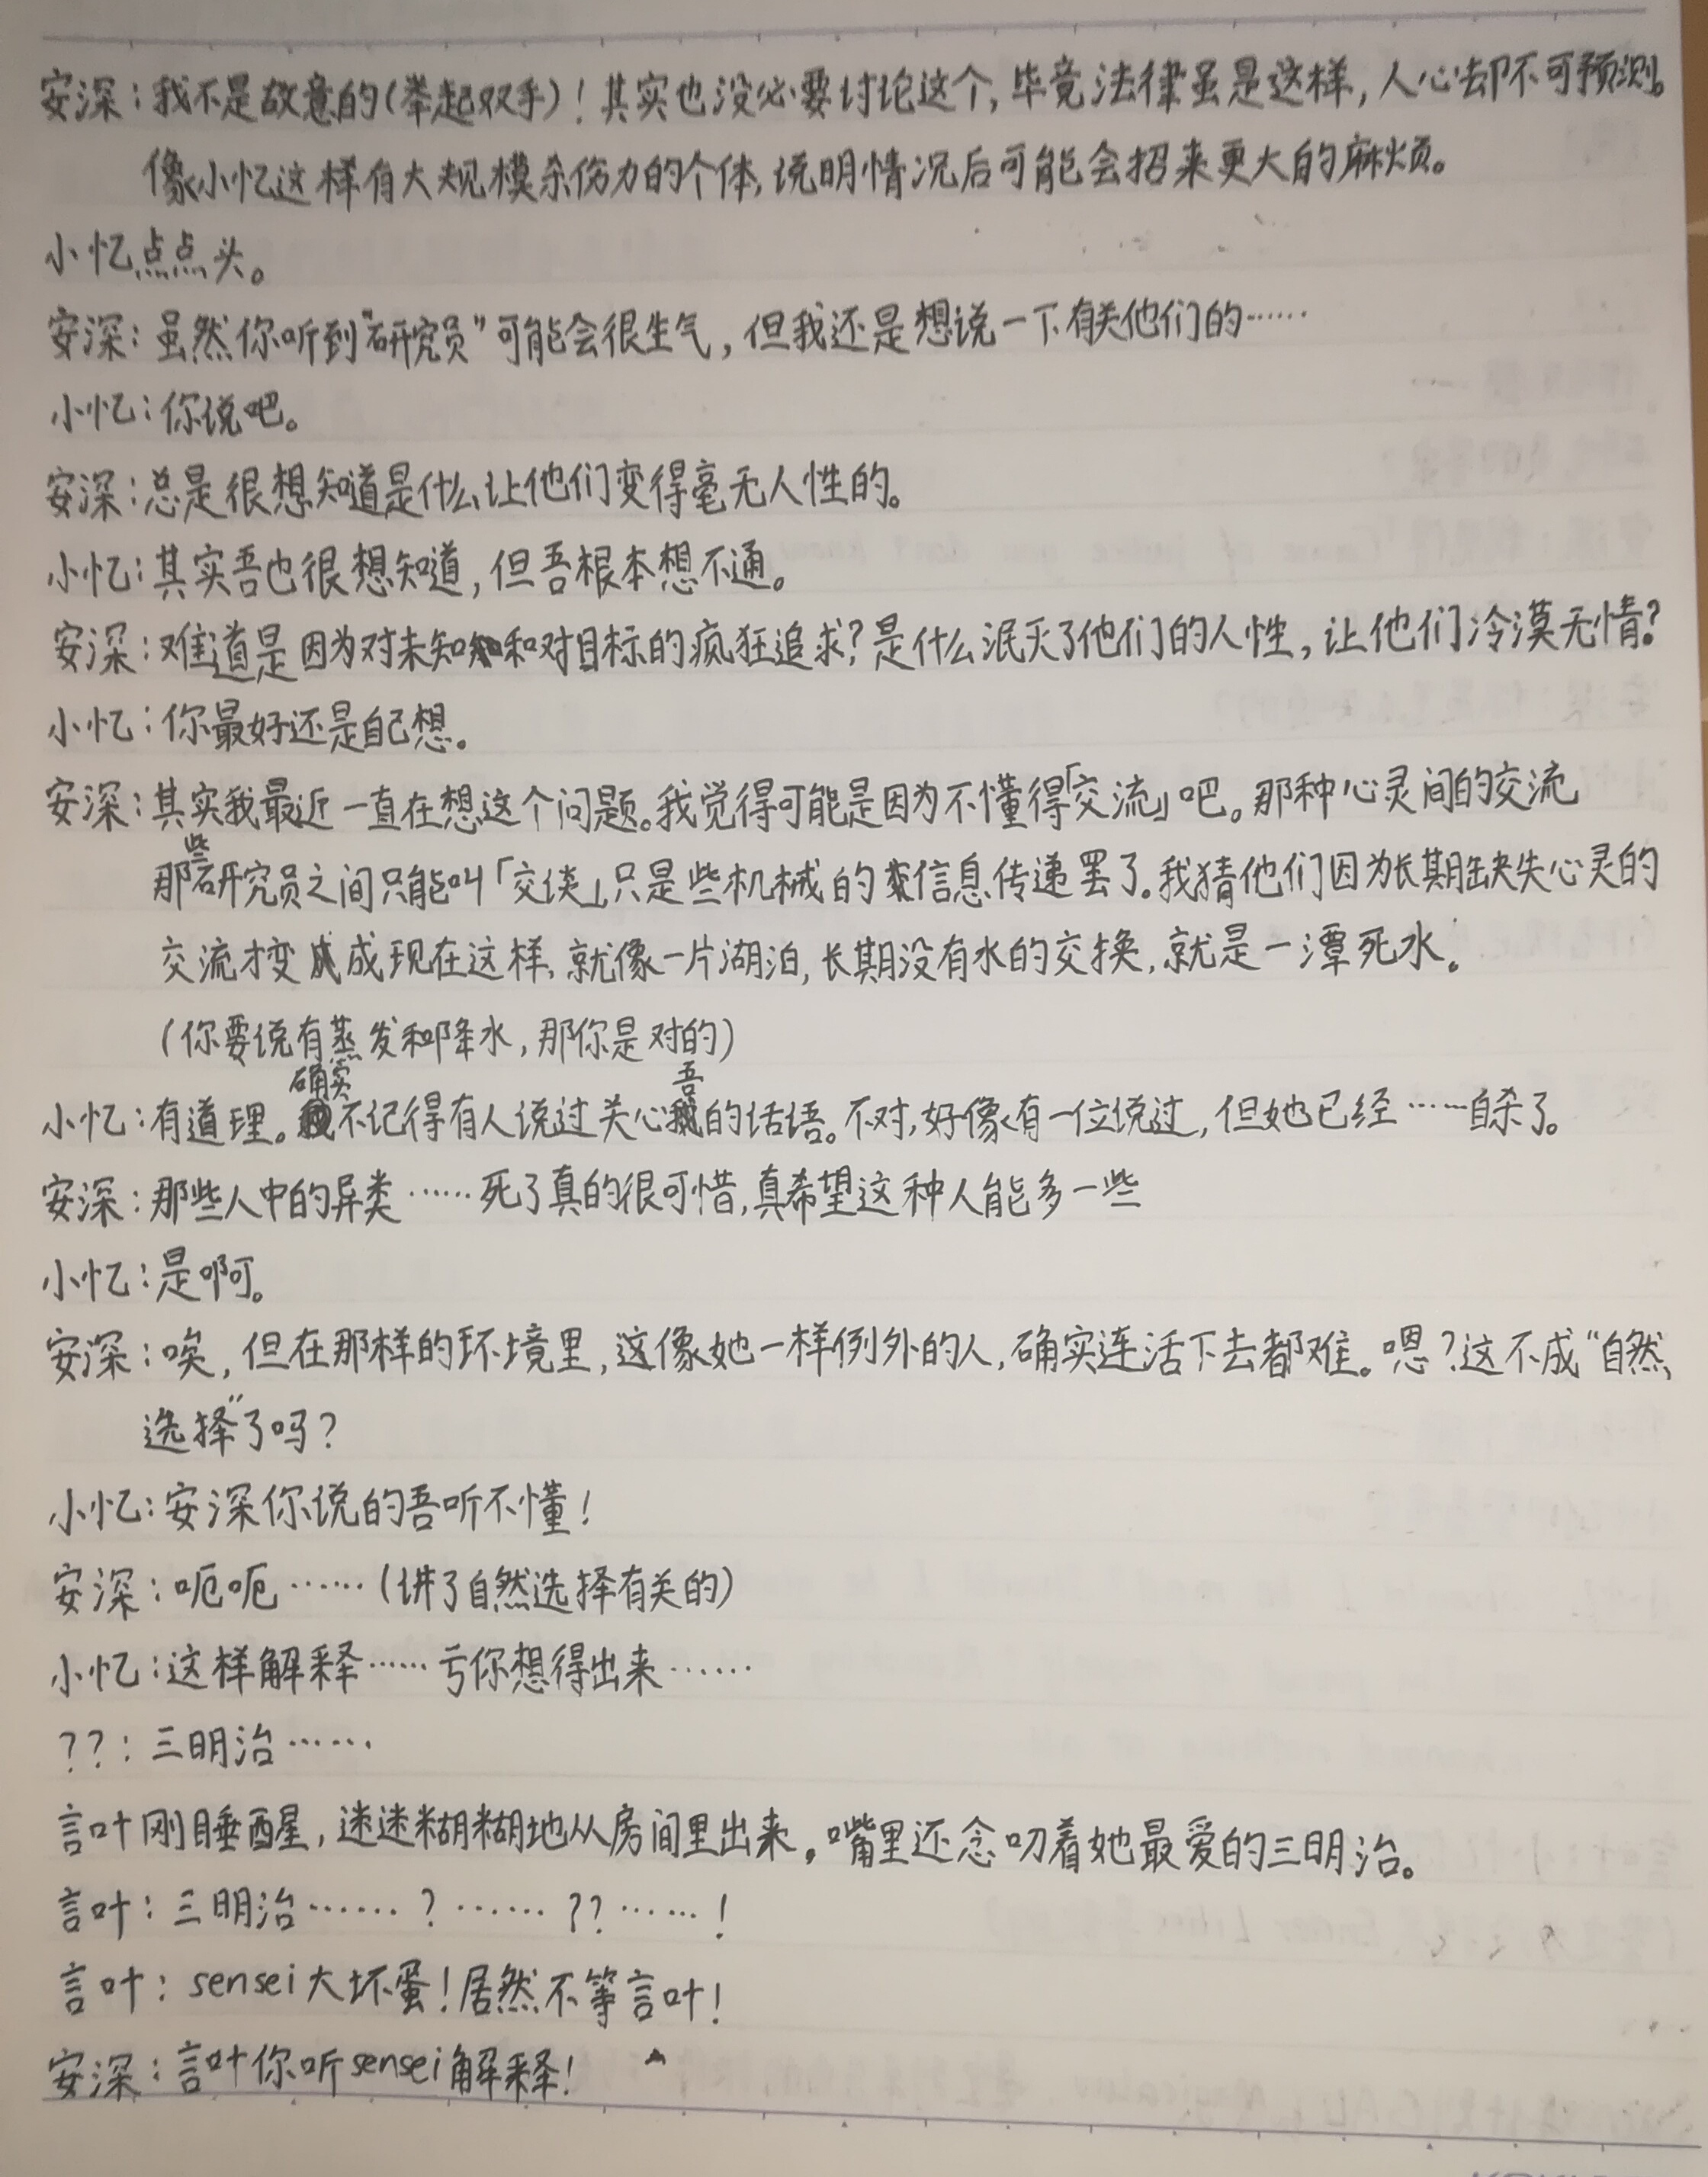 安深：我不是故意的（举起双手）！其实也没必要讨论这个，毕竟法律虽是这样，人心却不可预测。
像小忆这样有大规模杀伤力的个体，说明情况后可能会招来更大的麻烦。
小忆点点头。
安深：虽然你听到“研究员”可能会很生气，但我还是想说一下有关他们的……
小忆：你说吧。
安深：总是很想知道是什么让他们变得毫无人性的。
小忆：其实吾也很想知道，但吾根本想不通。
安深：难道是因为对未知和对目标的疯狂追求？是什么泯灭了他们的人性，让他们冷漠无情？
小忆：你最好还是自己想。
安深：其实我最近一直在想这个问题。我觉得可能是因为不懂得「交流」吧。那种心灵间的交流
那些研究员之间只能叫「交谈」，只是些机械的信息传递罢了。我猜他们因为长期缺失心灵的
交流才变成现在这样，就像一片湖泊，长期没有水的交换，就是一潭死水。
（你要说有蒸发和降水，那你是对的）
小忆：有道理。确实不记得有人说过关心吾的话语。不对，好像有一位说过，但她已经……自杀了。
安深：那些人中的异类……死了真的很可惜，真希望这种人能多一些
小忆：是啊。
安深：唉，但在那样的环境里，这像她一样例外的人，确实连活下去都难。嗯？这不成“自然
选择”了吗？
小忆：安深你说的吾听不懂！
安深：呃呃……（讲了自然选择有关的）
小忆：这样解释……亏你想得出来……
??：三明治……
言叶刚睡醒，迷迷糊糊地从房间里出来，嘴里还念叨着她最爱的三明治。
言叶：三明治……？……？？……！
言叶：sensei大坏蛋！居然不等言叶！
安深：言叶你听sensei解释！